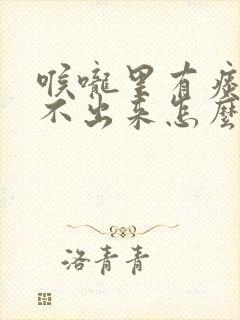 喉嚨里有痰
不出来怎麼
洛青青